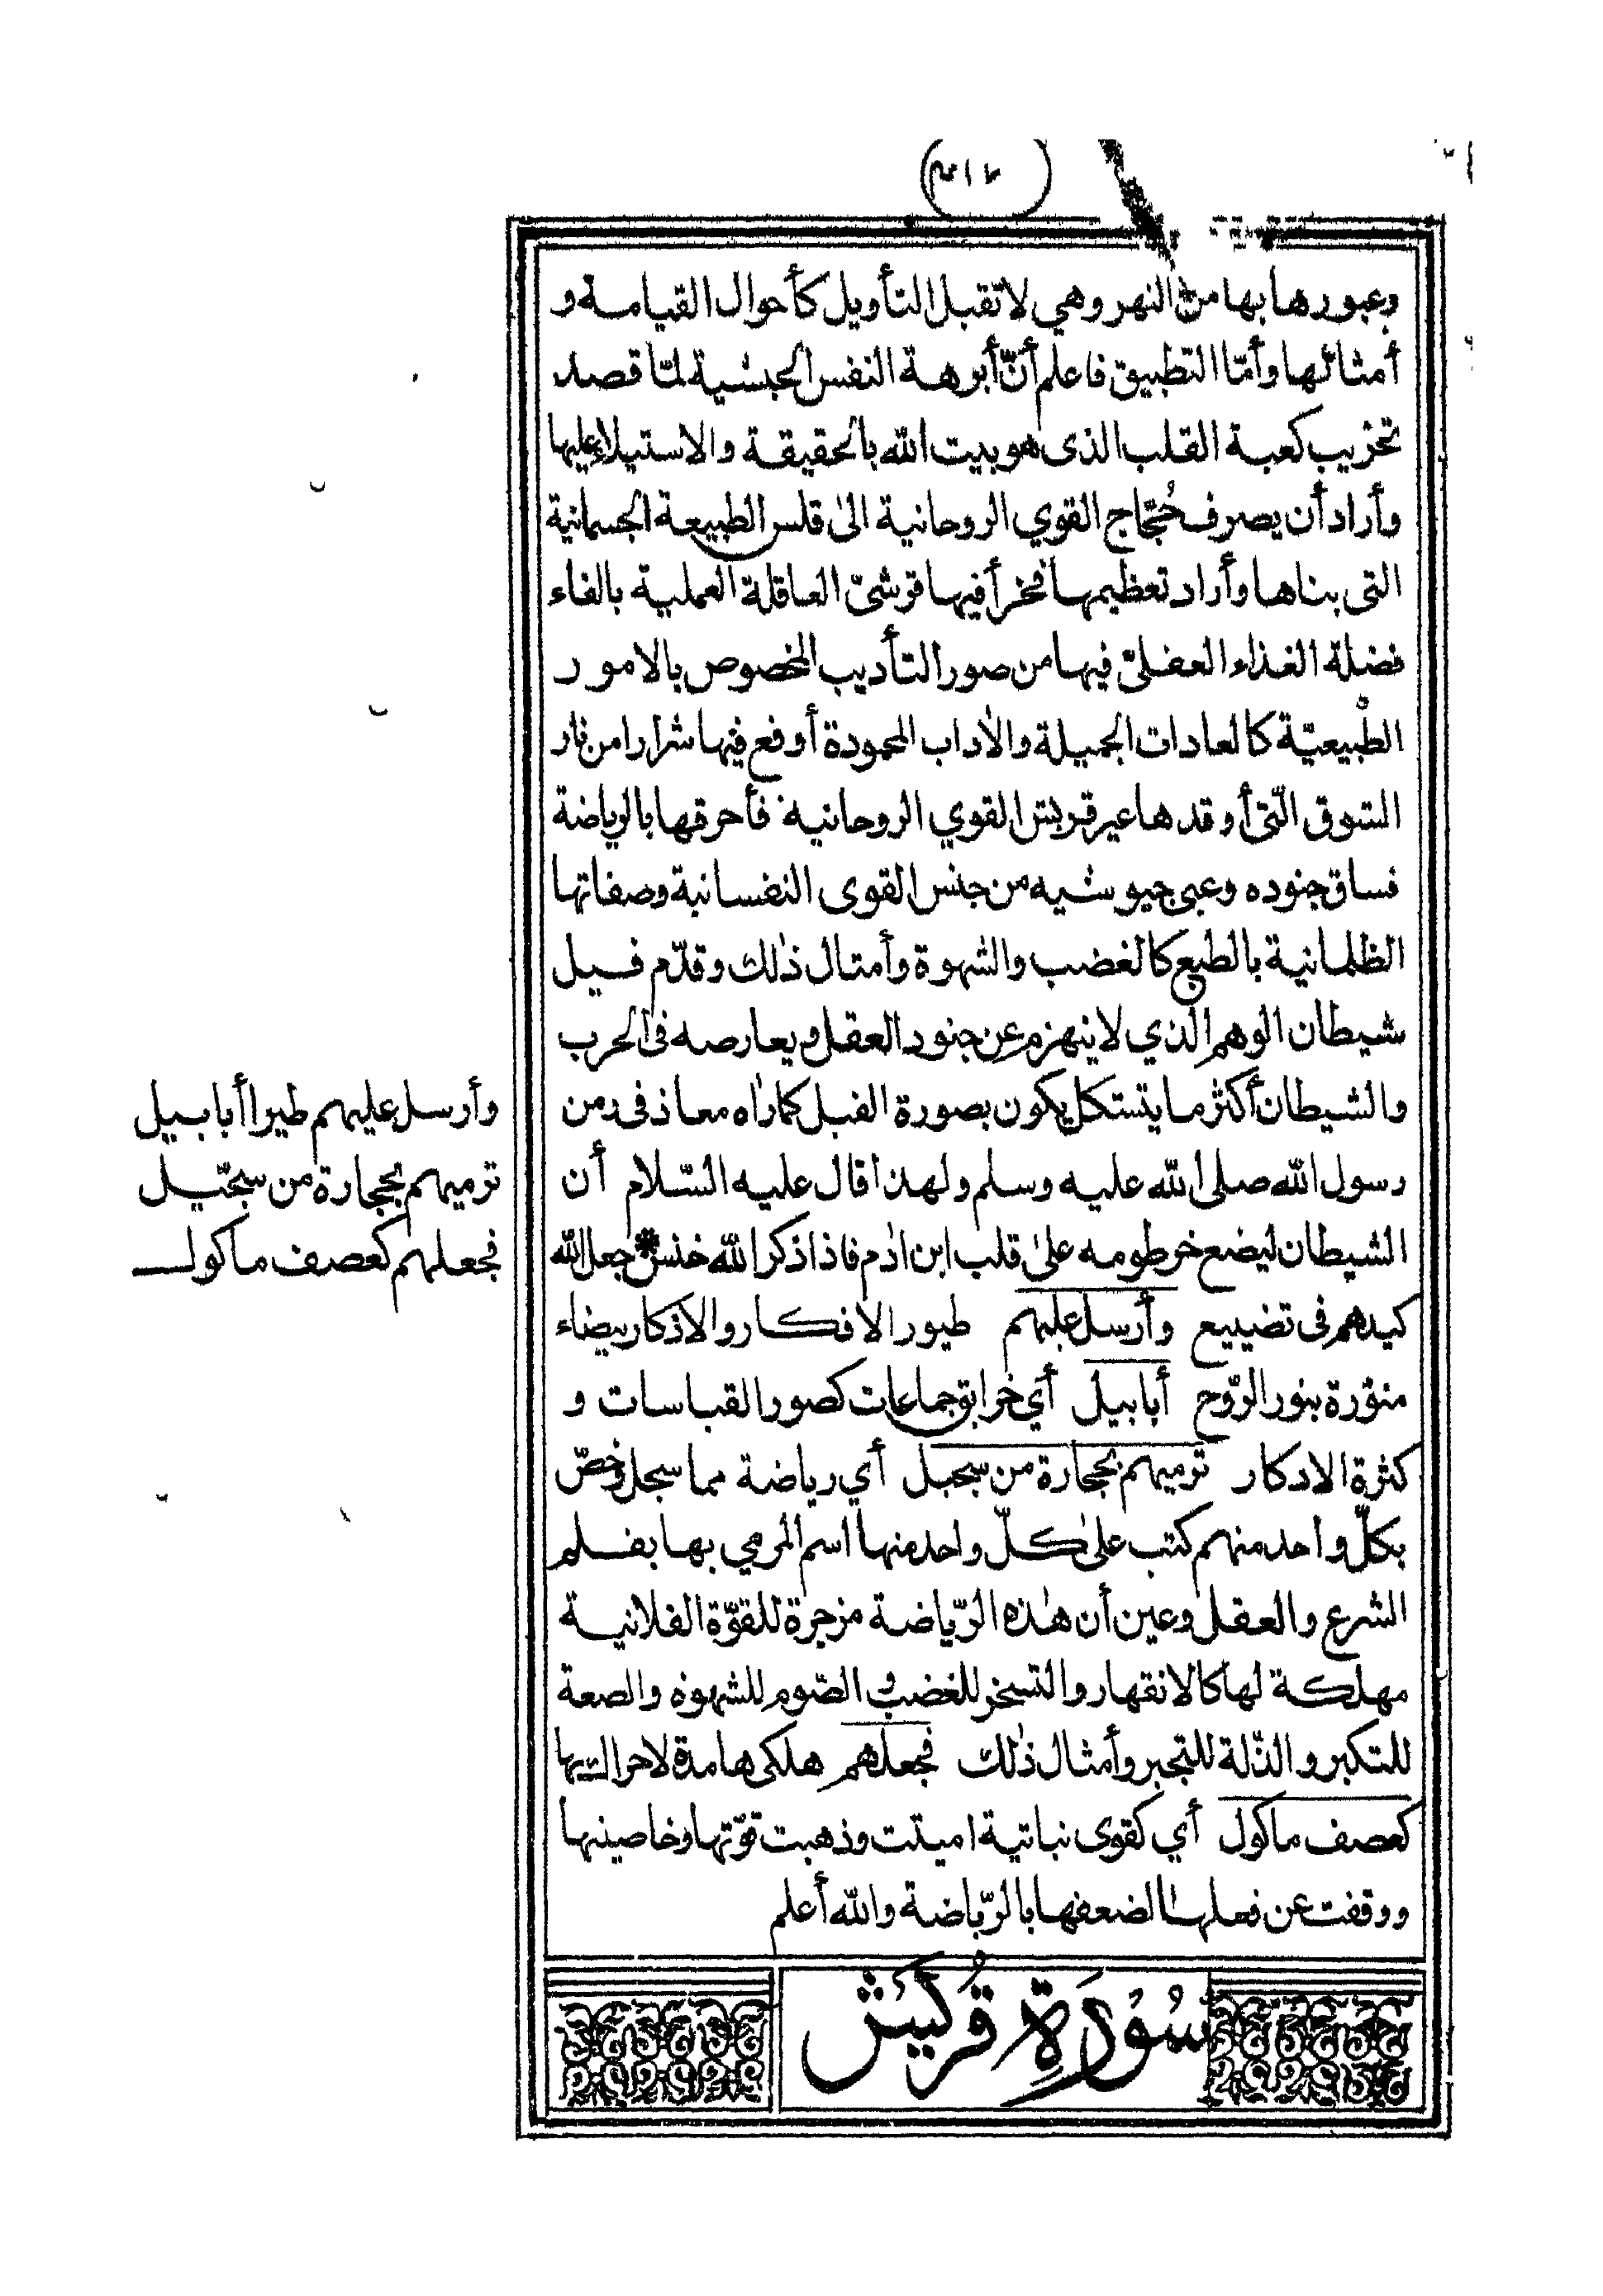 وعبورها بها من النهر وهي لا تقبل التأويل كأحوال القيامة و
أمثالها وأمّا التطبيق فاعلم أنّ أبرهة النفس الحبشية لمّا قصد
تخريب كعبة القلب الذى هو بيت الله بالحقيقة والاستيلاء عليها
وأراد أن يصرف حُجّاج القوي الروحانية الى قلس الطبيعة الجسمانية
التى بناها وأراد تعظيمها فخرأ فيها قرشىّ العاقلة العملية بالقاء
فضلة الغذاء العقلىّ فيها من صور التأديب المخصوص بالامور
الطبيعيّة كالعادات الجميلة والاداب المحمودة أو وقع فيها شرارا من نار
الشوق الّتى أوقدها عير قريش القوي الروحانية فأحرقها بالرياضة
فساق جنوده وعبى جيوشه من جنس القوى النفسانية وصفاتها
الظلمانية بالطبع كالغضب والشهوة وأمثال ذلك وقدّم فيل
شيطان الوهم الذي لا ينهزم عن جنود العقل ويعارضه فى الحرب
والشيطان أكثر ما يتشكل يكون بصورة الفيل كما رآه معاذ فى زمن
رسول الله صلى الله عليه وسلم ولهذا قال عليه السّلام أن
الشيطان ليضع خرطومه على قلب ابن ادم فاذا ذكر الله خنس جعل الله
كيدهم فى تضييع وأرسل عليهم طيور الافكار والاذكار بيضاء
منوّرة بنور الرّوح أبابيل أي خرابق جماعات كصور القياسات و
كثرة الاذكار ترميهم بحجارة من سجيل أي رياضة مما سجل وخصّ
بكلّ واحد منهم كتب على كلّ واحد منها اسم المرمي بها بقلم
الشرع والعقل وعين أن هذه الرّياضة مزجرة للقوّة الفلانية
مهلكة لها كالانقهار والتسخر للغضب و الصّوم للشهوة والضعة
للتكبر والذّلة للتجبر وأمثال ذلك فجعلهم هلكى هامدة لا حراك بها
كعصف ماكول أي كقوى نباتية اميتت وذهبت قوّتها وخاصيتها
ووقفت عن فعلها لضعفها بالرّياضة والله أعلم
سُورَةِ قُرَيْش
وأرسل عليهم طيرا أبابيل
ترميهم بحجارة من سجّيل
فجعلهم كعصف ماكول